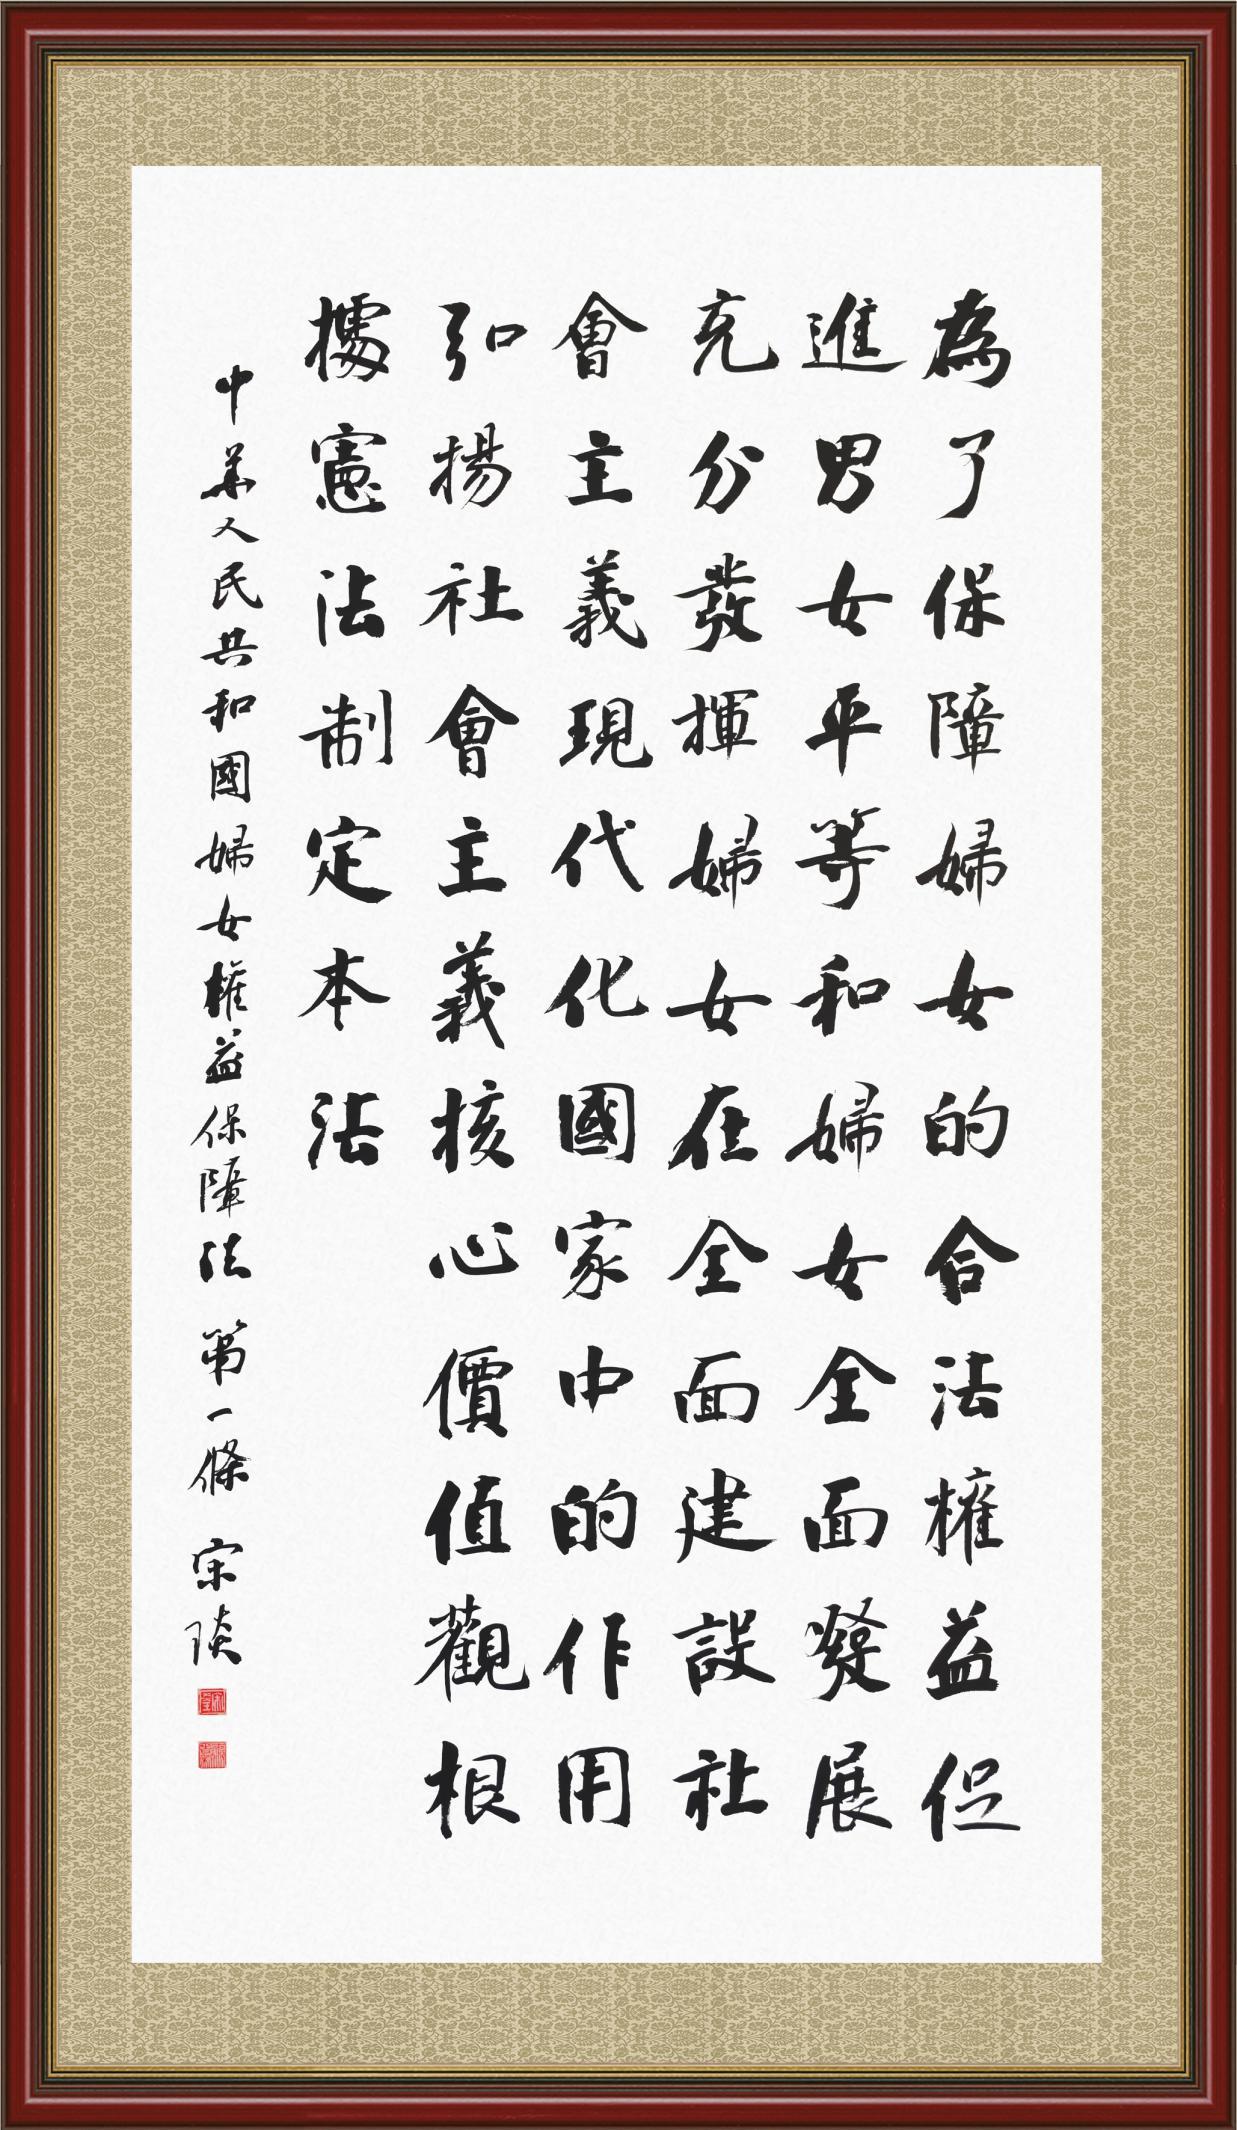 為了保障婦女的合法權益促
進男女平等和婦女全面發展
充分發揮婦女在全面建設社
會主義現代化國家中的作用
弘揚社會主義核心價值觀根
據憲法制定本法
中華人民共和國婦女權益保障法 第一條 宋琰